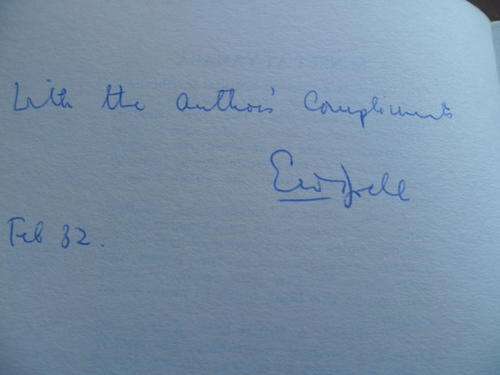 With the author's Compliments
Feb 82.